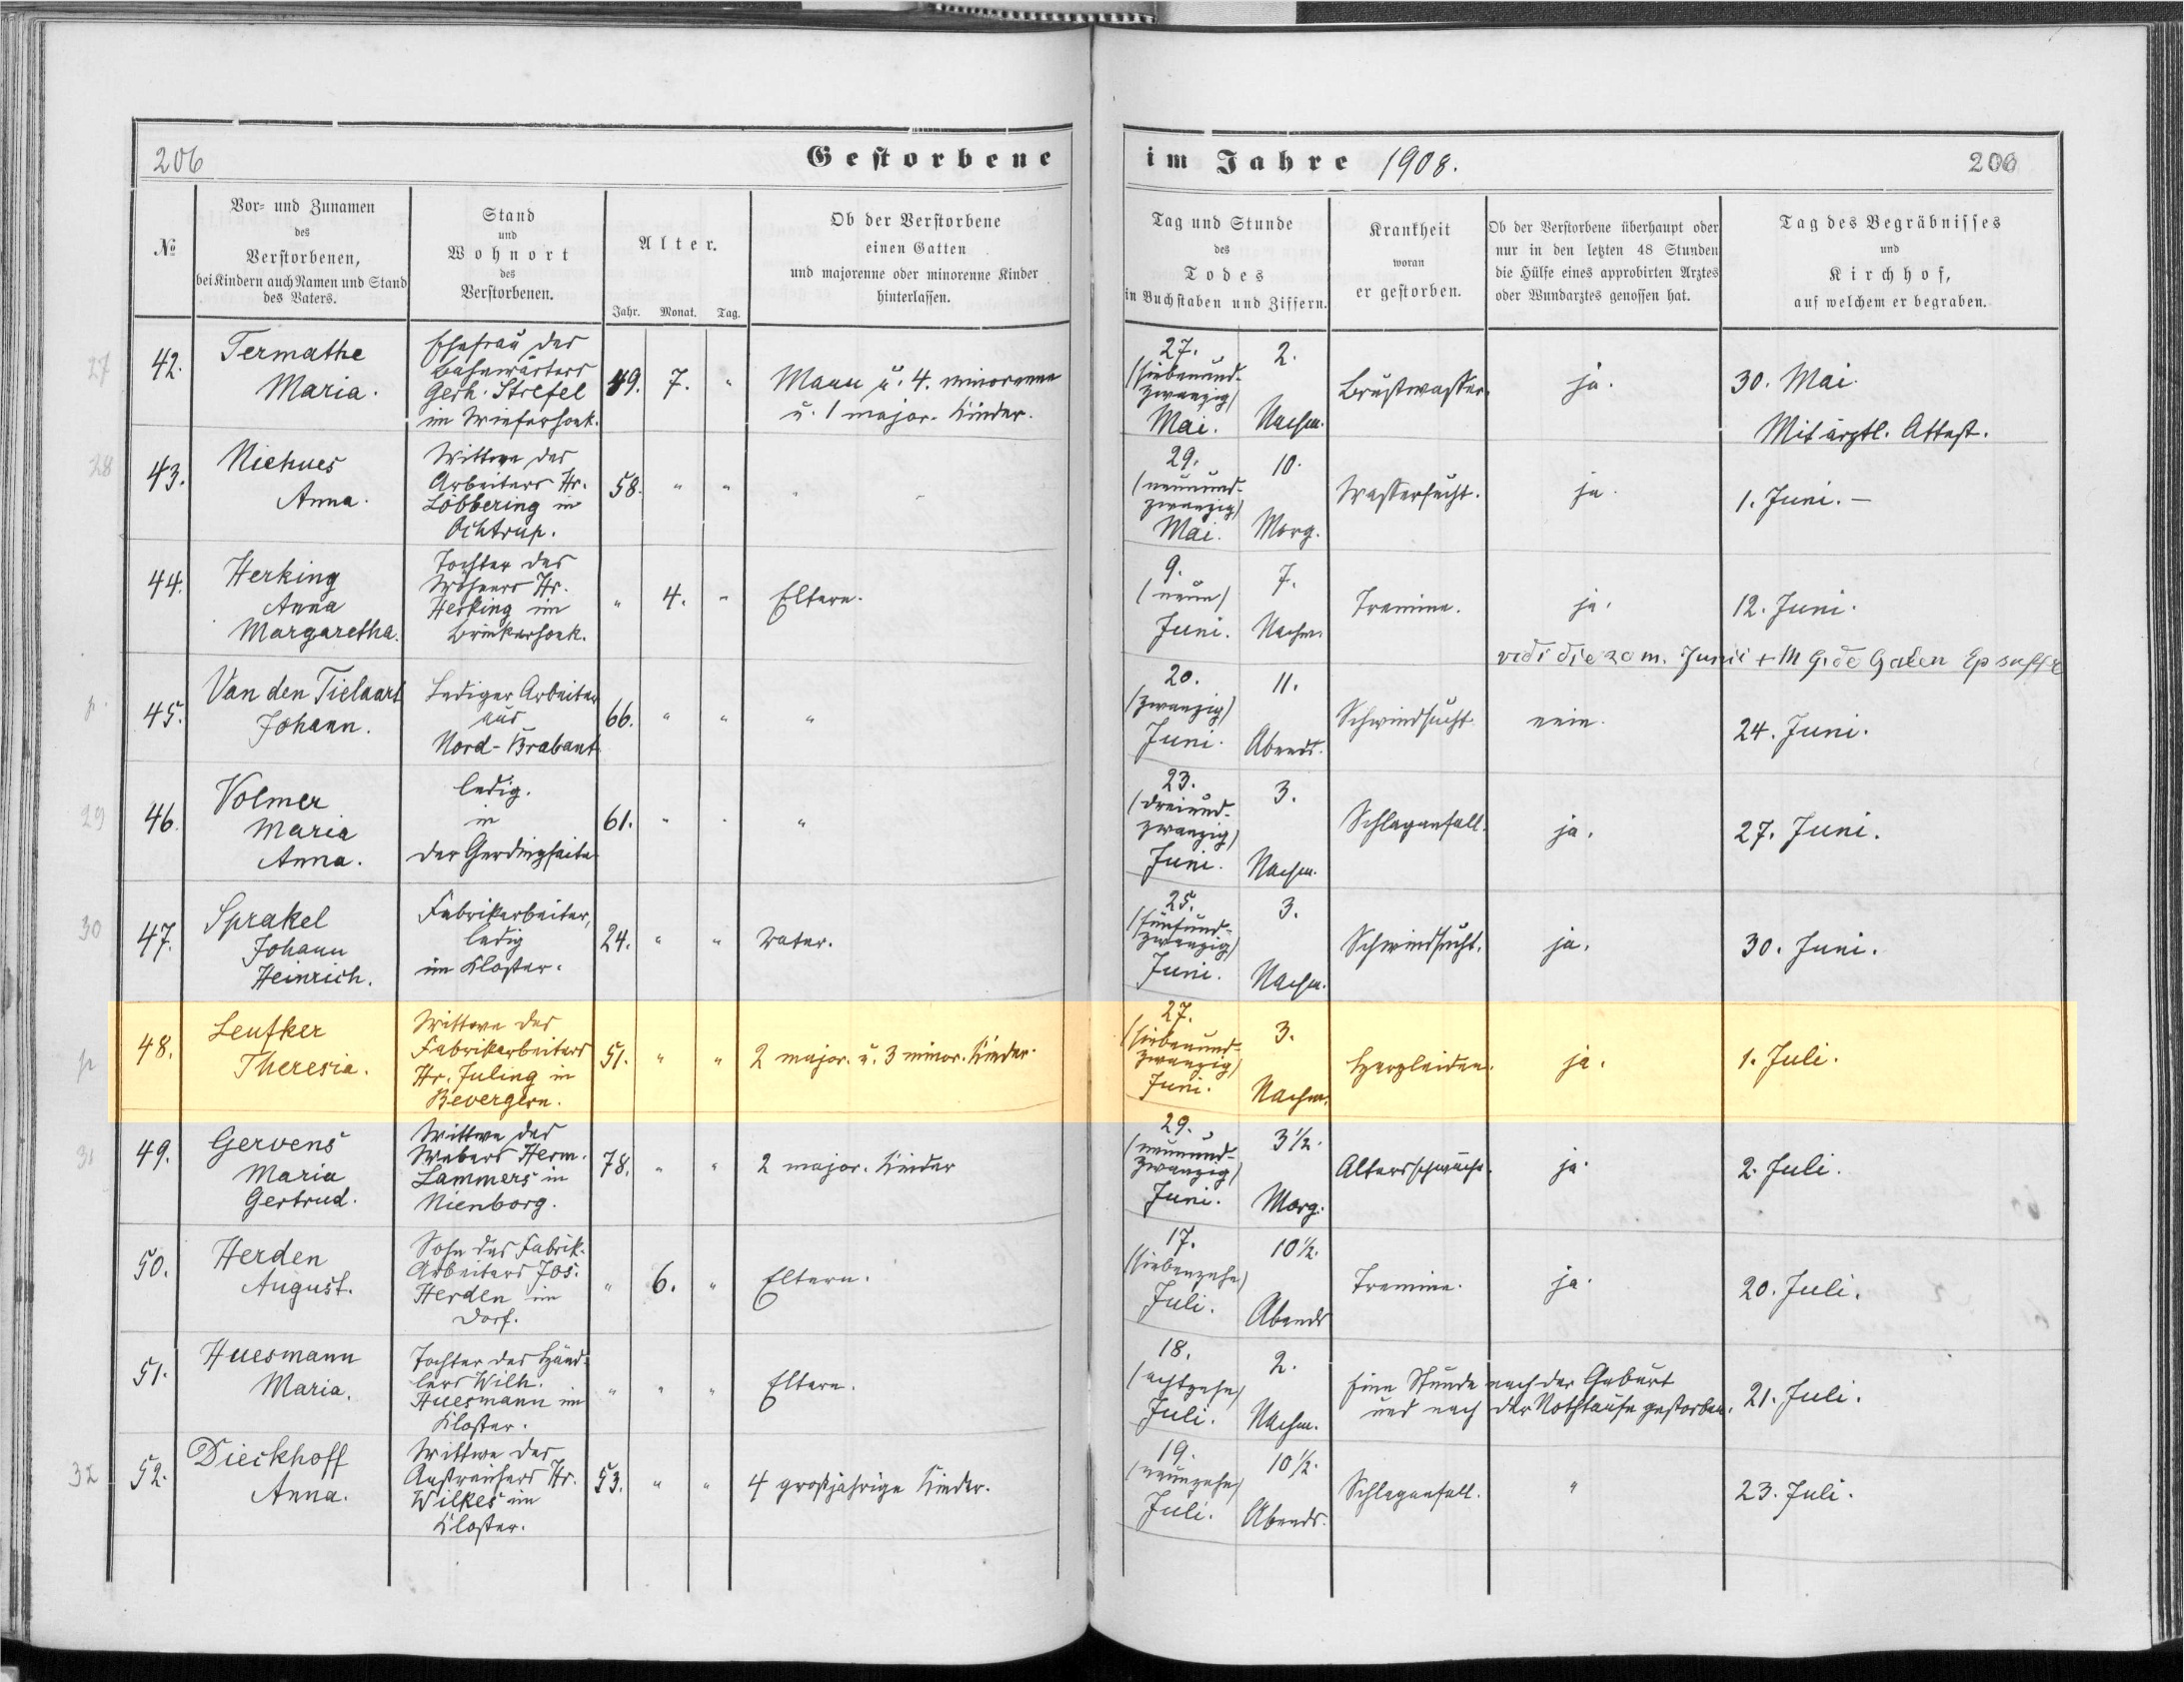 206
Gestorbene
im Jahre 1908.
206
№
Vor- und Zunamen
des
Verstorbenen,
bei Kindern auch Namen und Stand
des Vaters.
Stand
und
Wohnort
des
Verstorbenen.
Alter.
Jahr. Monat. Tag.
Ob der Verstorbene
einen Gatten
und majorenne oder minorenne Kinder
hinterlassen.
Tag und Stunde
des
Todes
in Buchstaben und Ziffern.
Krankheit
woran
er gestorben.
Ob der Verstorbene überhaupt oder
nur in den letzten 48 Stunden
die Hülfe eines approbirten Arztes
oder Wundarztes genossen hat.
Tag des Begräbnisses
und
Kirchhof,
auf welchem er begraben.
27
42.
Termathe
Maria.
Ehefrau des
Bahnwärters
Gerh. Strefel
im Wieferhoek.
49. 7. "
Mann u. 4. minorenne
u. 1 major. Kinder.
27.
(siebenund-
zwanzig)
Mai.
2.
Nachm.
Brustwasser.
ja.
30. Mai.
Mit ärztl. Attest.
28
43.
Niehues
Anna.
Wittwe des
Arbeiters Hr.
Löbbering in
Ochtrup.
58. " "
"
29.
(neunund-
zwanzig)
Mai.
10.
Morg.
Wassersucht.
ja.
1. Juni. –
44.
Herking
Anna
Margaretha.
Tochter des
Wöhners Hr.
Herking im
Brinkerhoek.
" 4. "
Eltern.
9.
(neun)
Juni.
7.
Nachm.
Tremine.
ja.
12. Juni.
vidi die 20 m. Junii + M G. de Galen Ep suffr
p.
45.
Van den Tielaart
Johann.
Lediger Arbeiter
aus
Nord-Brabant
66. " "
"
20.
(zwanzig)
Juni.
11.
Abends.
Schwindsucht
nein.
24. Juni.
29
46.
Volmer
Maria
Anna.
ledig.
in
der Gerdingseite
61. " "
"
23.
(dreiund-
zwanzig)
Juni.
3.
Nachm.
Schlaganfall.
ja.
27. Juni.
30
47.
Sprakel
Johann
Heinrich.
Fabrikarbeiter,
ledig
im Kloster.
24. " "
Vater.
25.
(fünfund-
zwanzig)
Juni.
3.
Nachm.
Schwindsucht.
ja.
30. Juni.
p
48.
Leufker
Theresia.
Wittwe des
Fabrikarbeiters
Hr. Juling in
Bevergern.
51. " "
2 major. u. 3 minor. Kinder.
27.
(siebenund-
zwanzig)
Juni.
3.
Nachm.
Herzleiden.
ja.
1. Juli.
31
49.
Gervens
Maria
Gertrud.
Wittwe des
Webers Herm.
Lammers in
Nienborg.
78. " "
2 major. Kinder
29.
(neunund-
zwanzig)
Juni.
3½.
Morg.
Altersschwäche.
ja.
2. Juli.
50.
Herden
August.
Sohn des Fabrik-
Arbeiters Jos.
Herden im
Dorf.
" 6. "
Eltern.
17.
(siebenzehn)
Juli.
10½.
Abends
Tremine.
ja.
20. Juli.
51.
Huesmann
Maria.
Tochter des Händ-
lers Wilh.
Huesmann im
Kloster.
" " "
Eltern.
18.
(achtzehn)
Juli.
2.
Nachm.
Eine Stunde nach der Geburt
und nach der Nothtaufe gestorben.
21. Juli.
32
52.
Dieckhoff
Anna.
Wittwe des
Anstreichers Hr.
Wilkes im
Kloster.
53. " "
4 großjährige Kinder.
19.
(neunzehn)
Juli.
10½.
Abends.
Schlaganfall.
"
23. Juli.